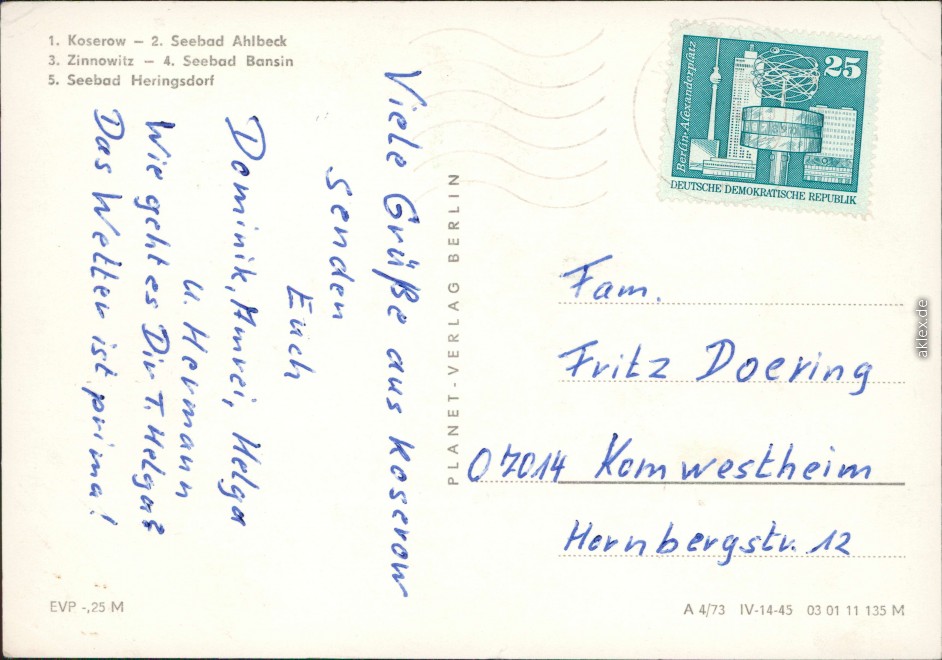 1. Koserow – 2. Seebad Ahlbeck
3. Zinnowitz – 4. Seebad Bansin
5. Seebad Heringsdorf
Viele Grüße aus Koserow
senden
Euch
Dominik, Amrei, Helga
u. Hermann
Wie geht es Dir T. Helga?
Das Wetter ist prima!
PLANET-VERLAG BERLIN
Berlin-Alexanderplatz
25
DEUTSCHE DEMOKRATISCHE REPUBLIK
Fam.
Fritz Doering
07014 Kornwestheim
Hornbergstr. 12
EVP -,25 M
A 4/73 IV-14-45 03 01 11 135 M
aklex.de